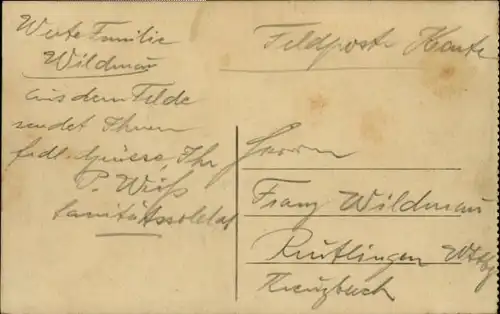 Werte Familie
Wildmau
aus dem Felde
sendet Ihnen
frdl. Grüsse, Ihr
P. Weiß
Sanitätssoldat
Feldpost Karte
Herrn
Franz Wildmau
Reutlingen Wttbg
Kreuzbuch